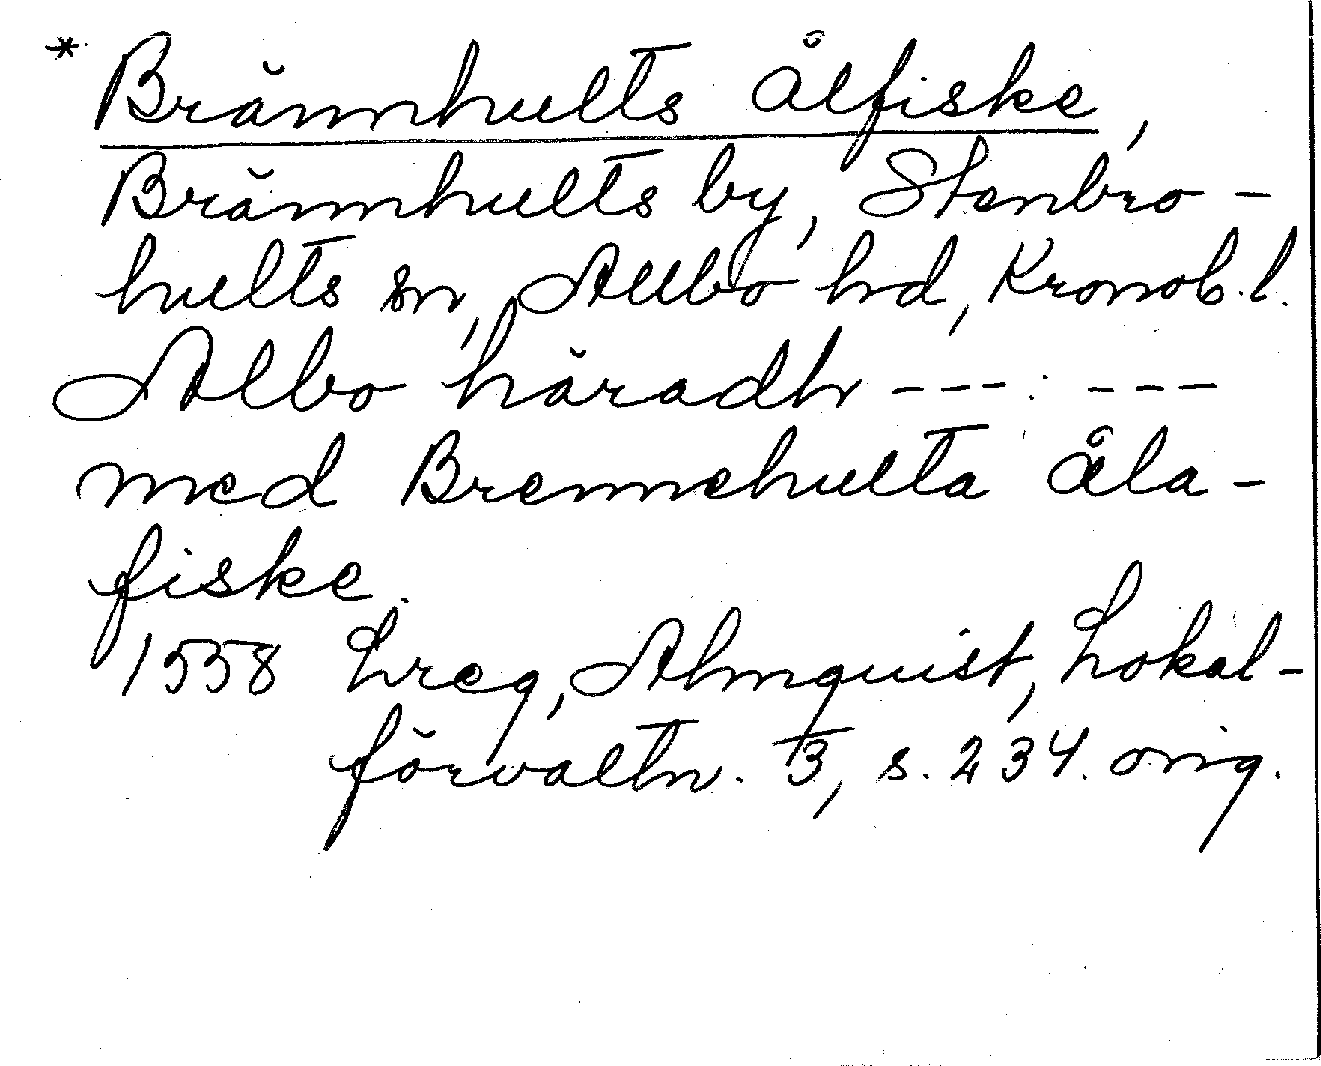 * Brännhults ålfiske,
Brännhults by, Stenbro-
hults sn, Allbo hd, Kronob. l.
Albo häradh --- : ---
med Brennehulta åla-
fiske.
1558 Lreg, Almquist, Lokal-
förvaltn. 3, s. 234. orig.